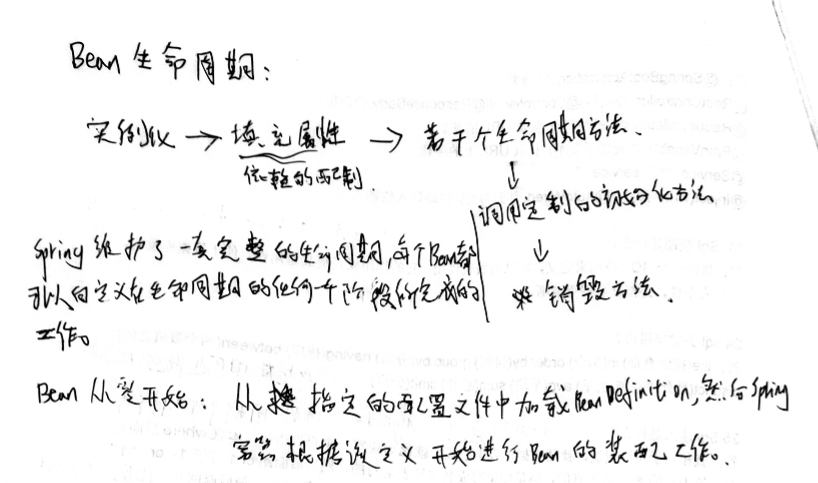 Bean 生命周期：
实例化 → 填充属性 → 若干个生命周期方法.
依赖的配制.
↓
调用定制的初始化方法
↓
销毁方法.
Spring 维护了一套完整的生命周期,每个Bean都
可以自定义在生命周期的任何一个阶段所完成的
工作。
Bean 从零开始： 从 指定的配置文件中加载 Bean Definition, 然后 Spring
容器根据该定义开始进行 Bean 的装配工作。